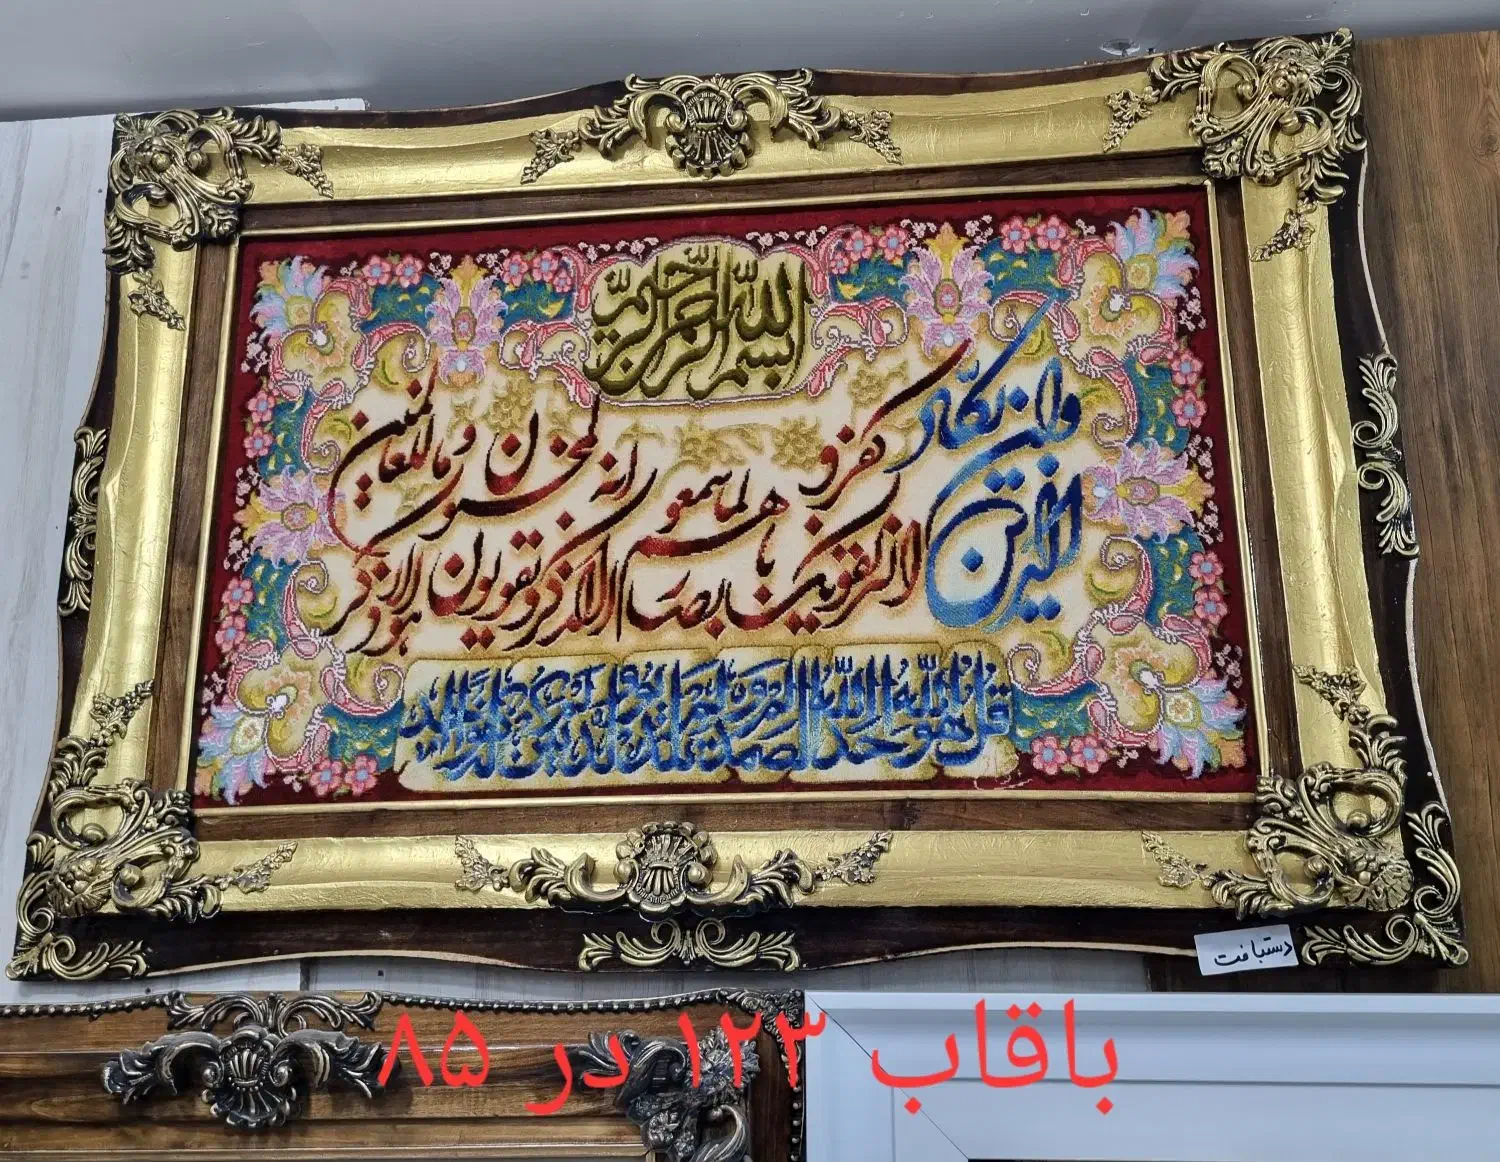 بسم الله الرحمن الرحیم
وان یکاد
الذین
کفروا لیزلقونک بابصارهم لما سمعوا الذکر و یقولون انه لمجنون و ما هو الا ذکر للعالمین
قل هو الله احد الله الصمد لم یلد و لم یولد و لم یکن له کفوا احد
دستبافت
باقاب ۱۲۳ در ۸۵